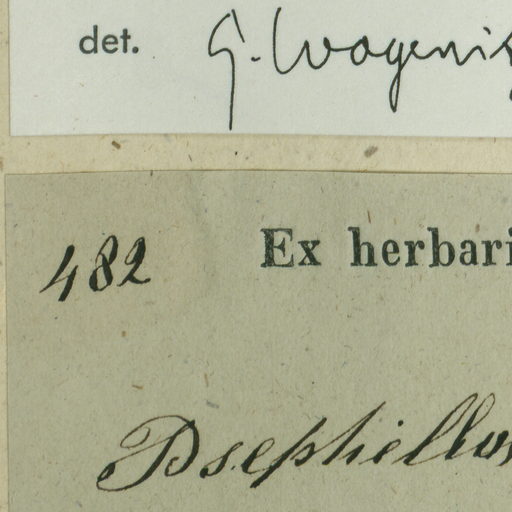 det. G. Wagenis
482 Ex herbari
Psephellus